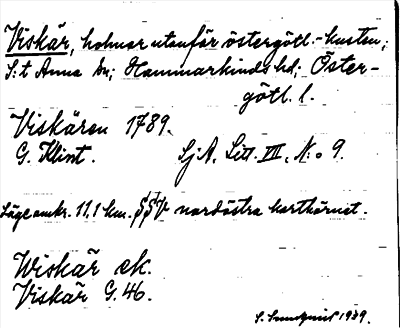 Viskär, holmar utanför östergötl.-kusten;
S:t Anna sn; Hammarkinds hd; Öster-
götl. l.
Viskären 1789.
G. Klint. Sj.A. Litt. VII. N:o 9.
Läge omkr. 11,1 km. SSV nordöstra kartkörnet.
Wiskär ek.
Viskär G. 46.
S. Sundquist 1939.